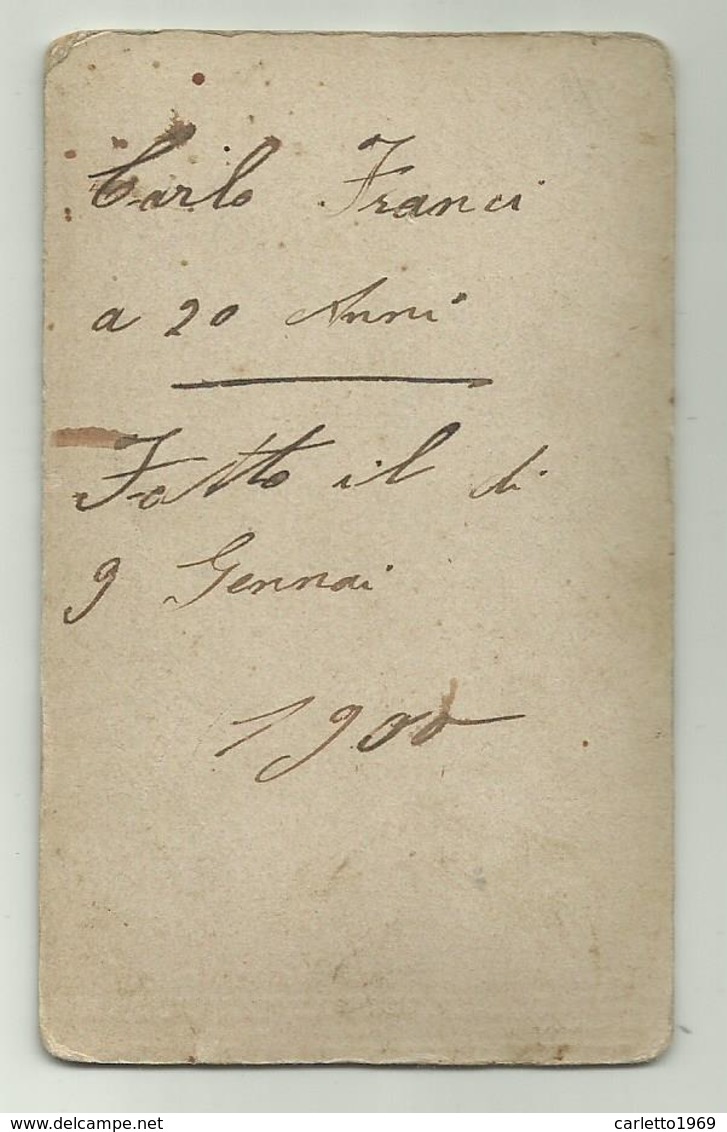 Carlo Franci
a 20 Anni
Fatto il di
9 Gennai
1900
delcampe.net
carletto1969